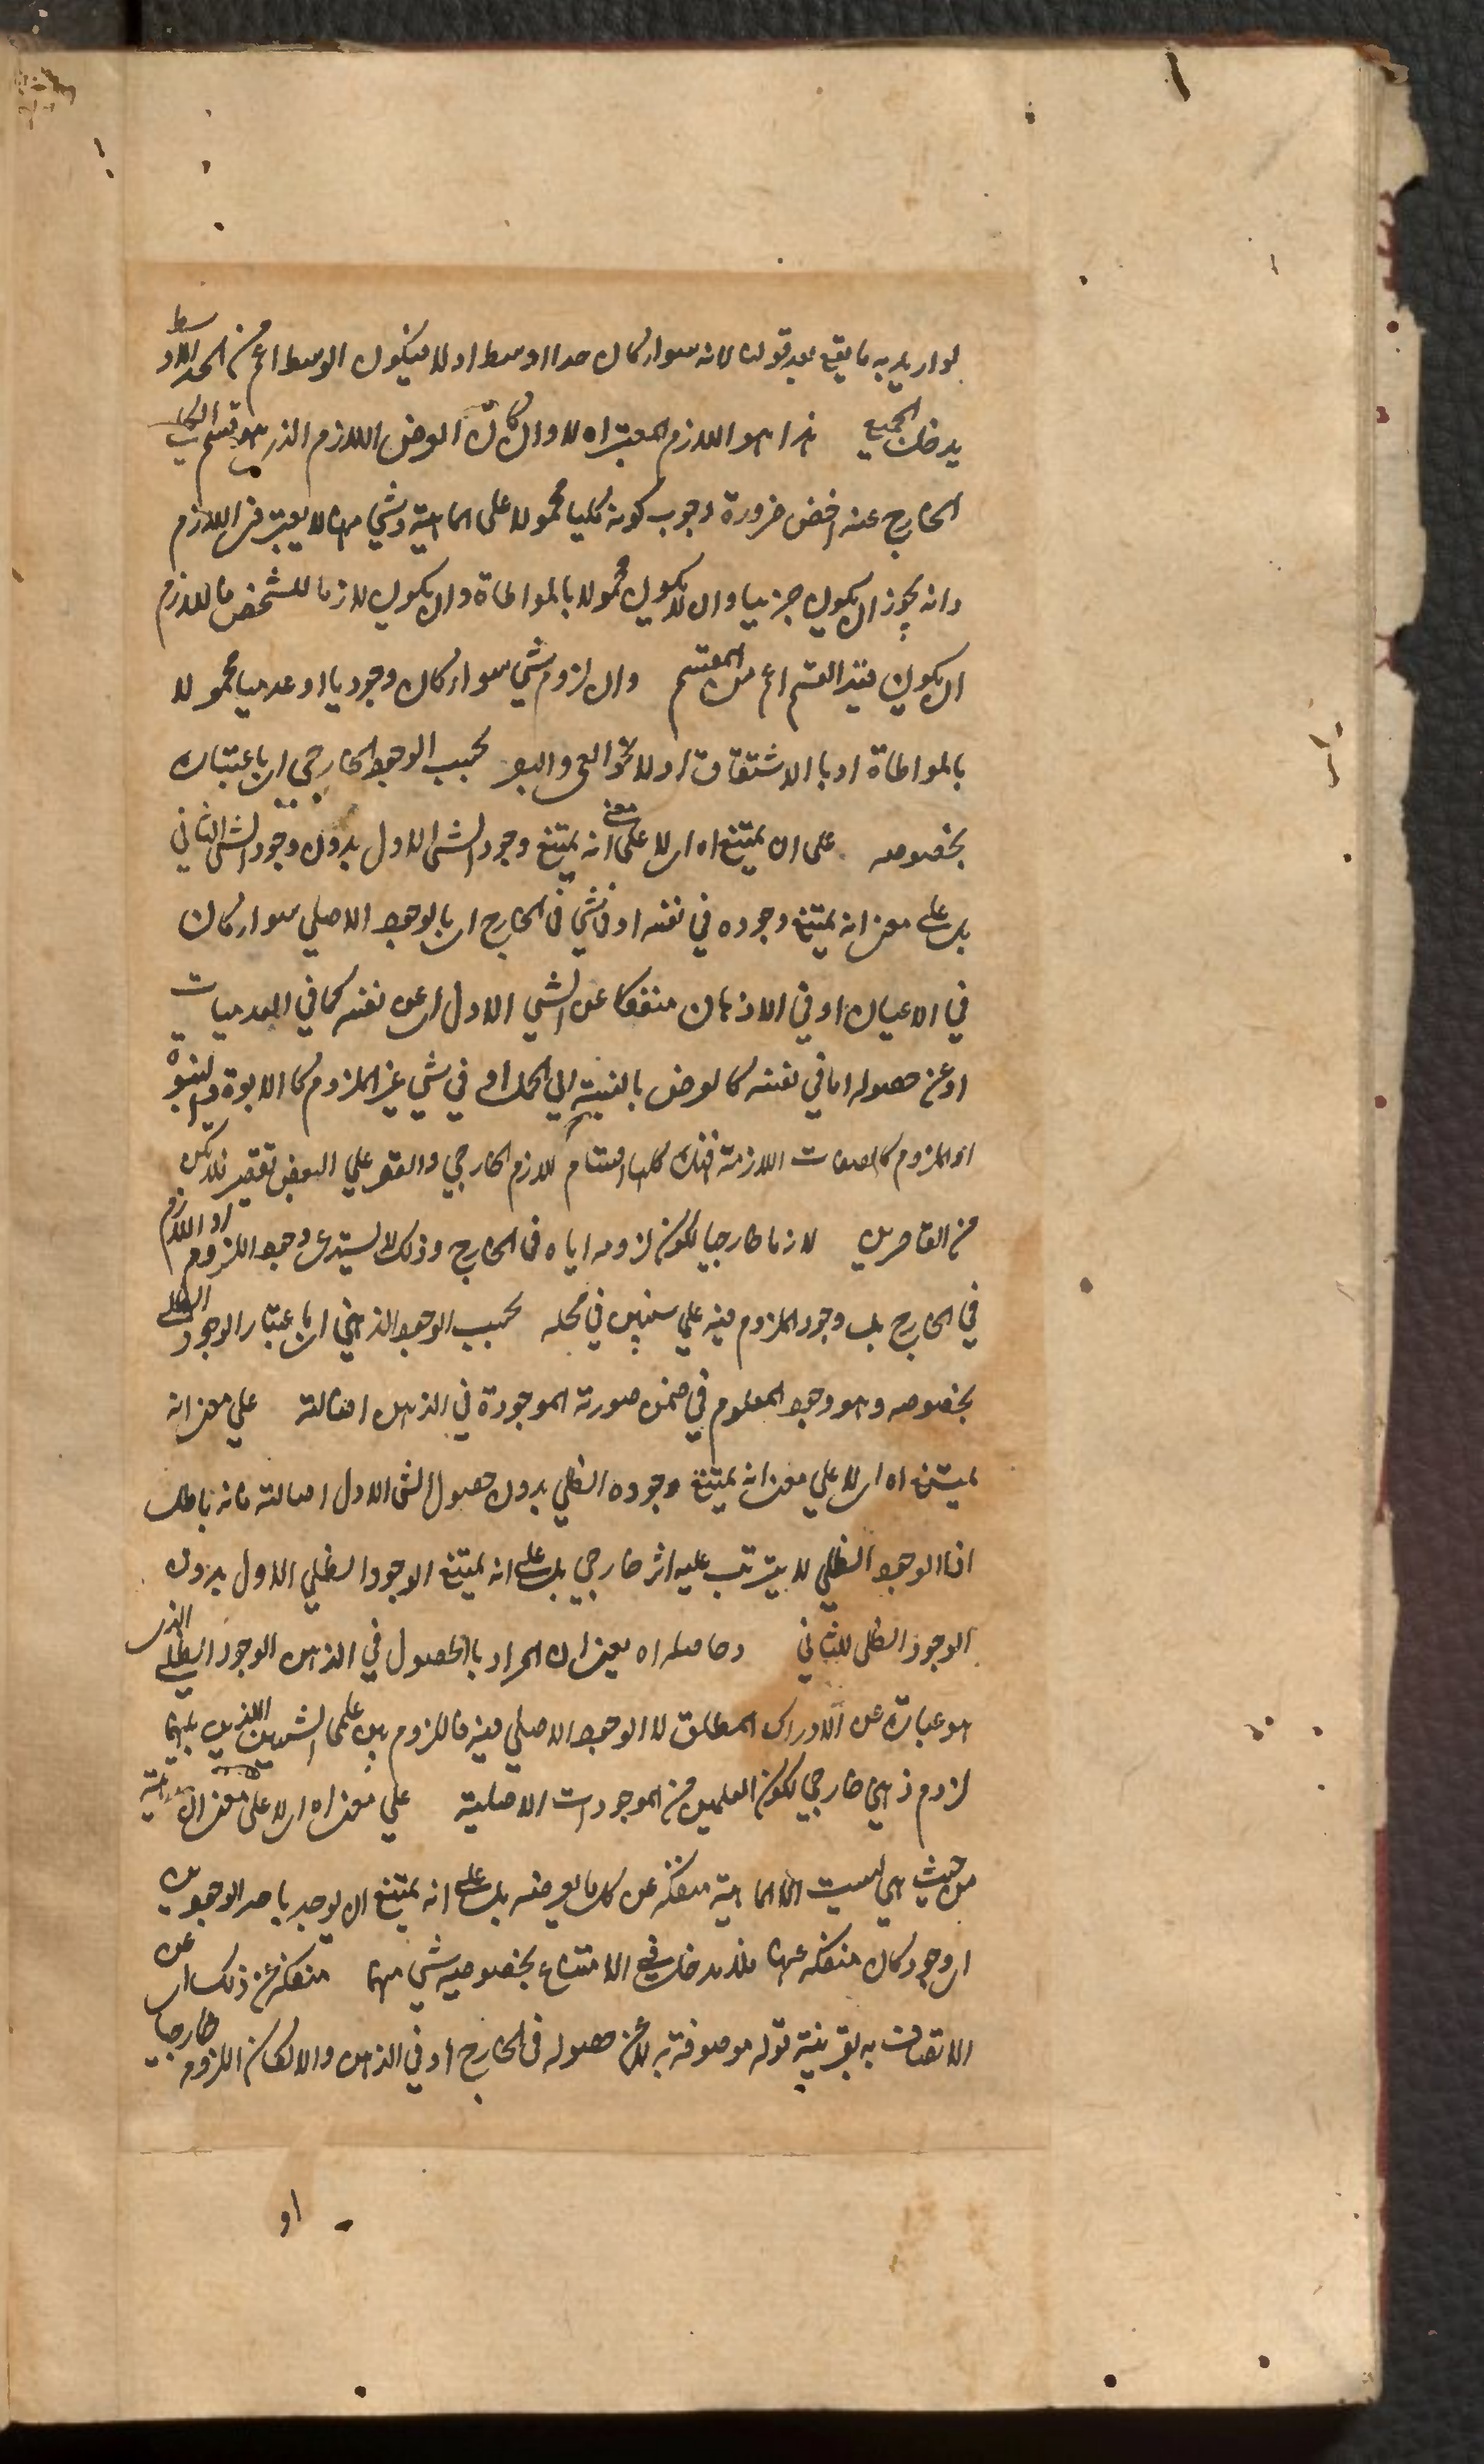 لو اريد به ما يقع بعد قولنا لانه سواء كان حدا اوسط او لا فيكون الوسط اعم من الحد الاوسط
يدخل الجميع هذا هو اللازم المعتبر اه لا وان كان العرض اللازم الذي هو قسم الكلي
الخارج عنه اخص ضرورة وجوب كونه كليا محمولا على الماهية وشي منها لا يعتبر في اللازم
وانه يجوز ان يكون جزئيا وان لا يكون محمولا بالمواطاة وان يكون لازما للشخص فاللازم
ان يكون قيد القسم اعم من المقسم وان لزوم شي سواء كان وجوديا او عدميا محمولا
بالمواطاة او بالاشتقاق او لا نحو العمى والبصر بحسب الوجود الخارجي اي باعتباره
بخصوصه على ان يمتنع اه اي لا على معنى انه يمتنع وجود الشي الاول بدون وجود الشي الثاني
بل على معنى انه يمتنع وجوده في نفسه او في شي في الخارج اي بالوجود الاصلي سواء كان
في الاعيان او في الاذهان منفكا عن الشي الاول اي عن نفسه كما في العدميات
او عن حصوله اما في نفسه كالعرض بالنسبة الى المحل او في شي غير الملزوم كالابوة والبنوة
او الملزوم كالصفات اللازمة فتلك كلها اقسام للازم الخارجي والقصر على البعض تقصير فلا تكن
من القاصرين لازما خارجيا لكون لزومه اياه في الخارج وذلك لا يستدعي وجود اللزوم او اللازم
في الخارج بل وجود الملزوم فيه على ما سنبين في محله بحسب الوجود الذهني اي باعتبار الوجود الظلي
بخصوصه وهو وجود المعلوم في ضمن صورته الموجودة في الذهن اصالة على معنى انه
يمتنع اه اي لا على معنى انه يمتنع وجوده الظلي بدون حصول الشي الاول اصالة فانه باطل
اذ الوجود الظلي لا يترتب عليه اثر خارجي بل على انه يمتنع الوجود الظلي الاول بدون
الوجود الظلي للثاني وحاصله اه يعني ان المراد بالحصول في الذهن الوجود الظلي الذي
هو عبارة عن الادراك المطلق لا الوجود الاصلي فيه فاللزوم بين علمي الشيئين اللذين بينهما
لزوم ذهني خارجي لكون العلمين من الموجودات الاصلية على معنى اه اي لا على معنى ان الماهية
من حيث هي ليست الا الماهية منفكة عن كل ما يعرضه بل على انه يمتنع ان يوجد باحد الوجودين
اي وجود كان منفكة عنها فلا مدخل في الامتناع بخصوصية شي منهما منفكة عن ذلك اي عن
الاتصاف به بقرينة قوله موصوفة به لا عن حصوله في الخارج او في الذهن والا لكان اللزوم خارجيا
او